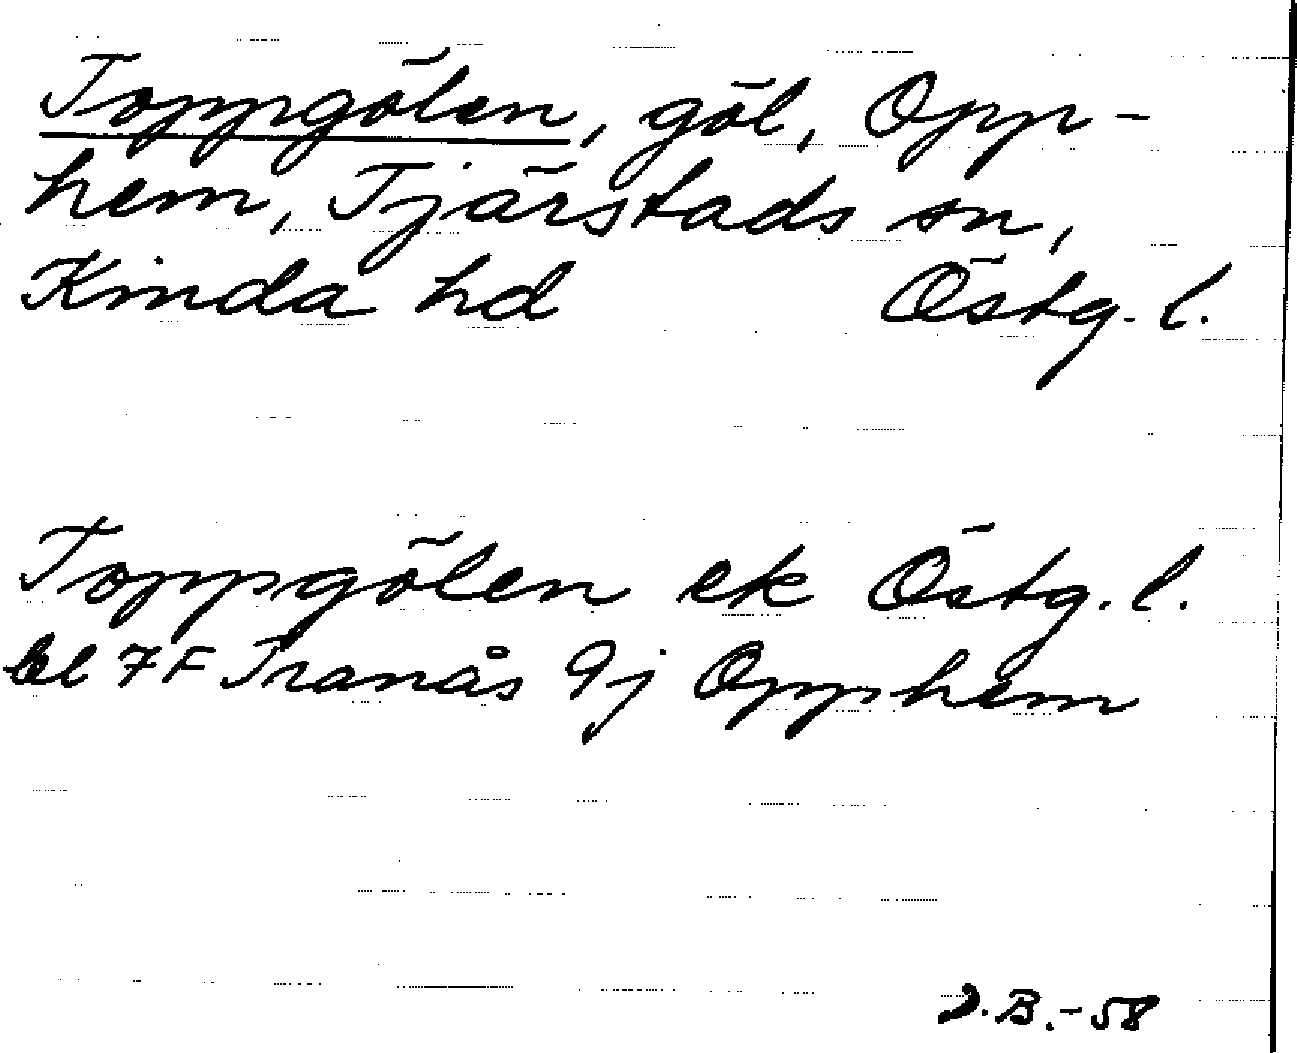 Toppgölen, göl, Opp-
hem, Tjärstads sn,
Kinda hd Östg. l.
Toppgölen ek Östg. l.
bl 7F Tranås 9j Opphem
B.-58